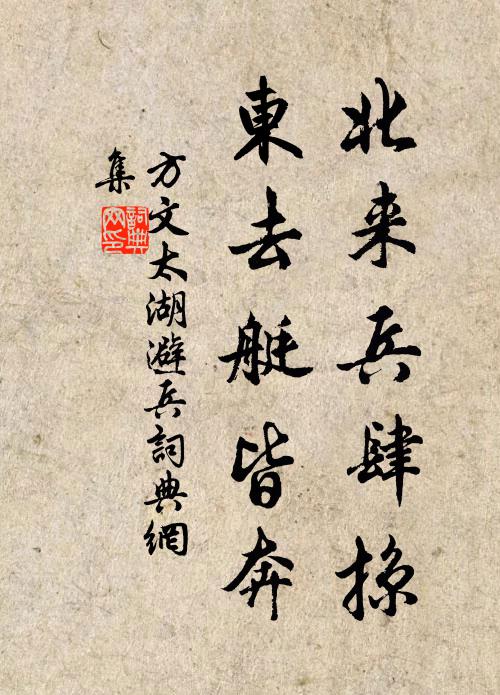 北来兵肆掠
東去艇皆奔
方文太湖避兵詞典網
集
詞典网印